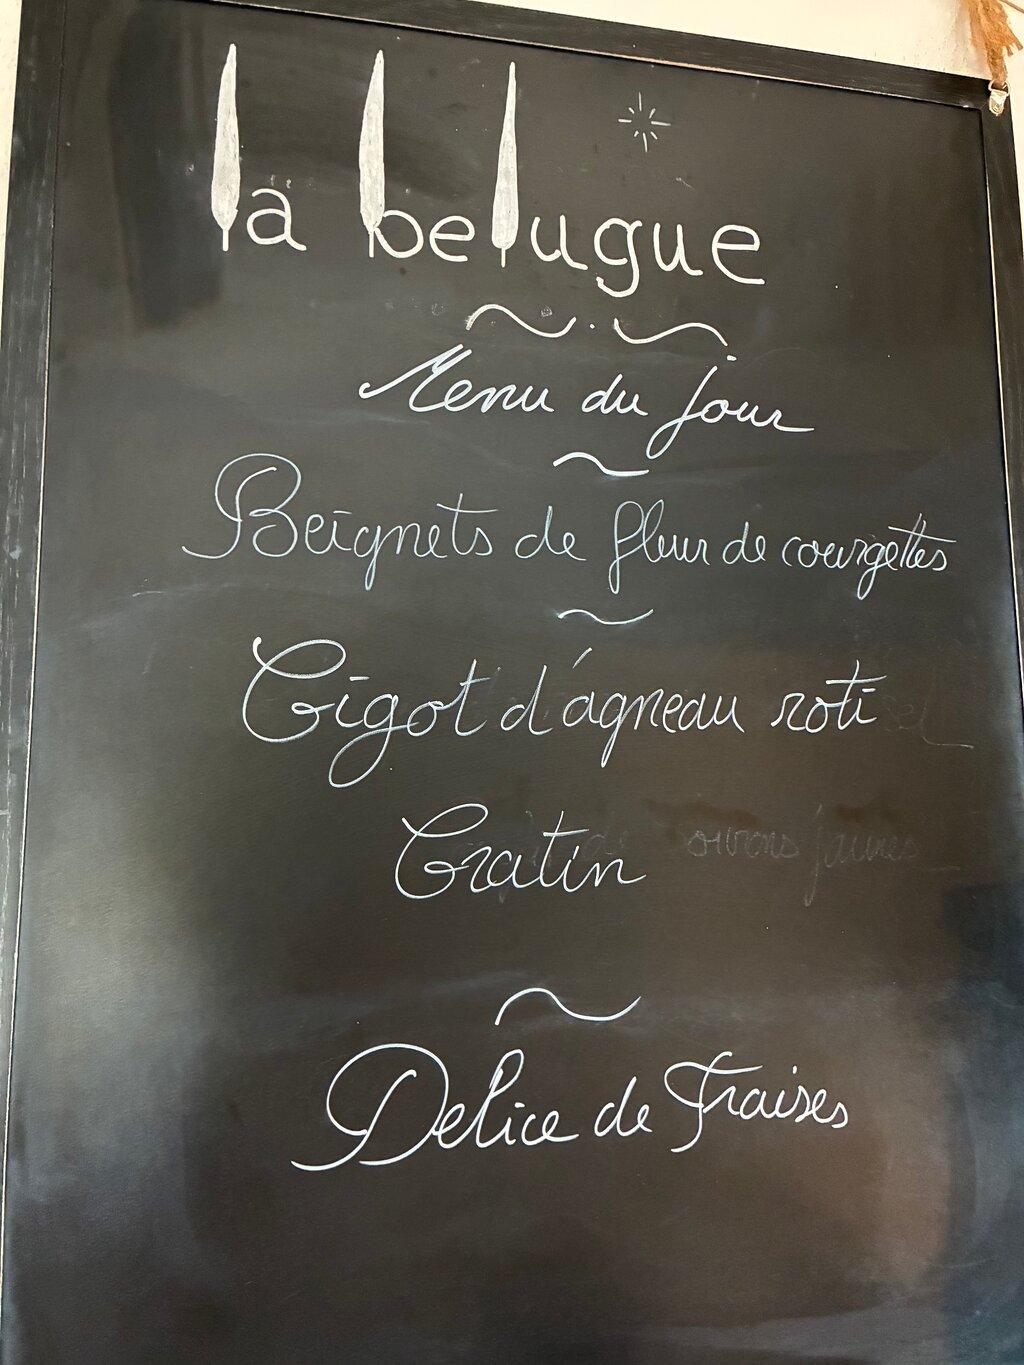 la belugue
Menu du jour
Beignets de fleur de courgettes
Gigot d'agneau roti
Gratin
Delice de Fraises